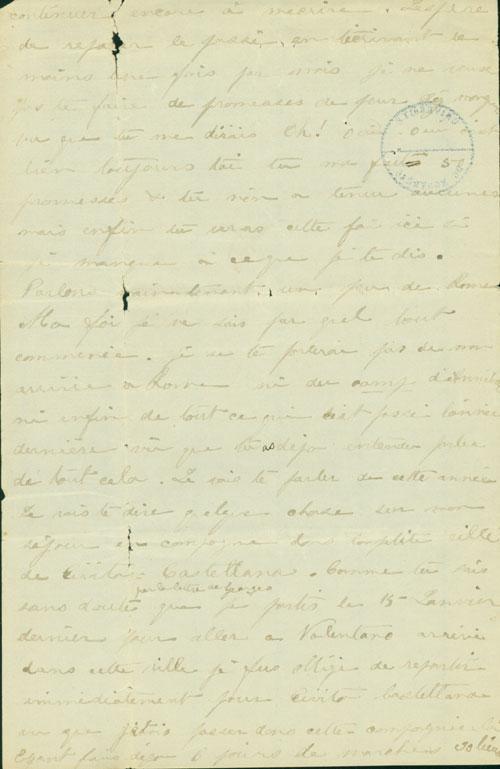 continuer encore à mecrire. Lespere
de reparer le passé, en técrivant le
moins une fois par mois je ne veux
pas te faire de promesses de peur
vu que tu me dirais Oh! Oui Oui
bien toujours toi tu ma fait 50
promesses & tu nén a tenu aucunes
mais enfin tu verras cette foi ici si
je manque à ce que je te dis.
Parlons maintenant, un peu de Rome
Ma foi je ne sais par quel bout
commencé. je ne te parlerai pas de mon
arrivée a Rome ni du camp
ni enfin de tout ce qui sest passé lannée
dernière vu que tu as déja entendu parler
de tout cela. Je vais te parler de cette année
Je vais te dire quelque chose sur mon
séjour en campagne dans la petite ville
de Civita-Castellana. Comme tu sais
par la lettre de Georges
sans doute que je partis le 15 Janvier
dernier pour aller a Valentano arrivé
dans cette ville je fus obligé de repartir
immédiatement pour Civita Castellana
vu que passer dans cette compagnie
Ayant fais déja 6 jours de marche